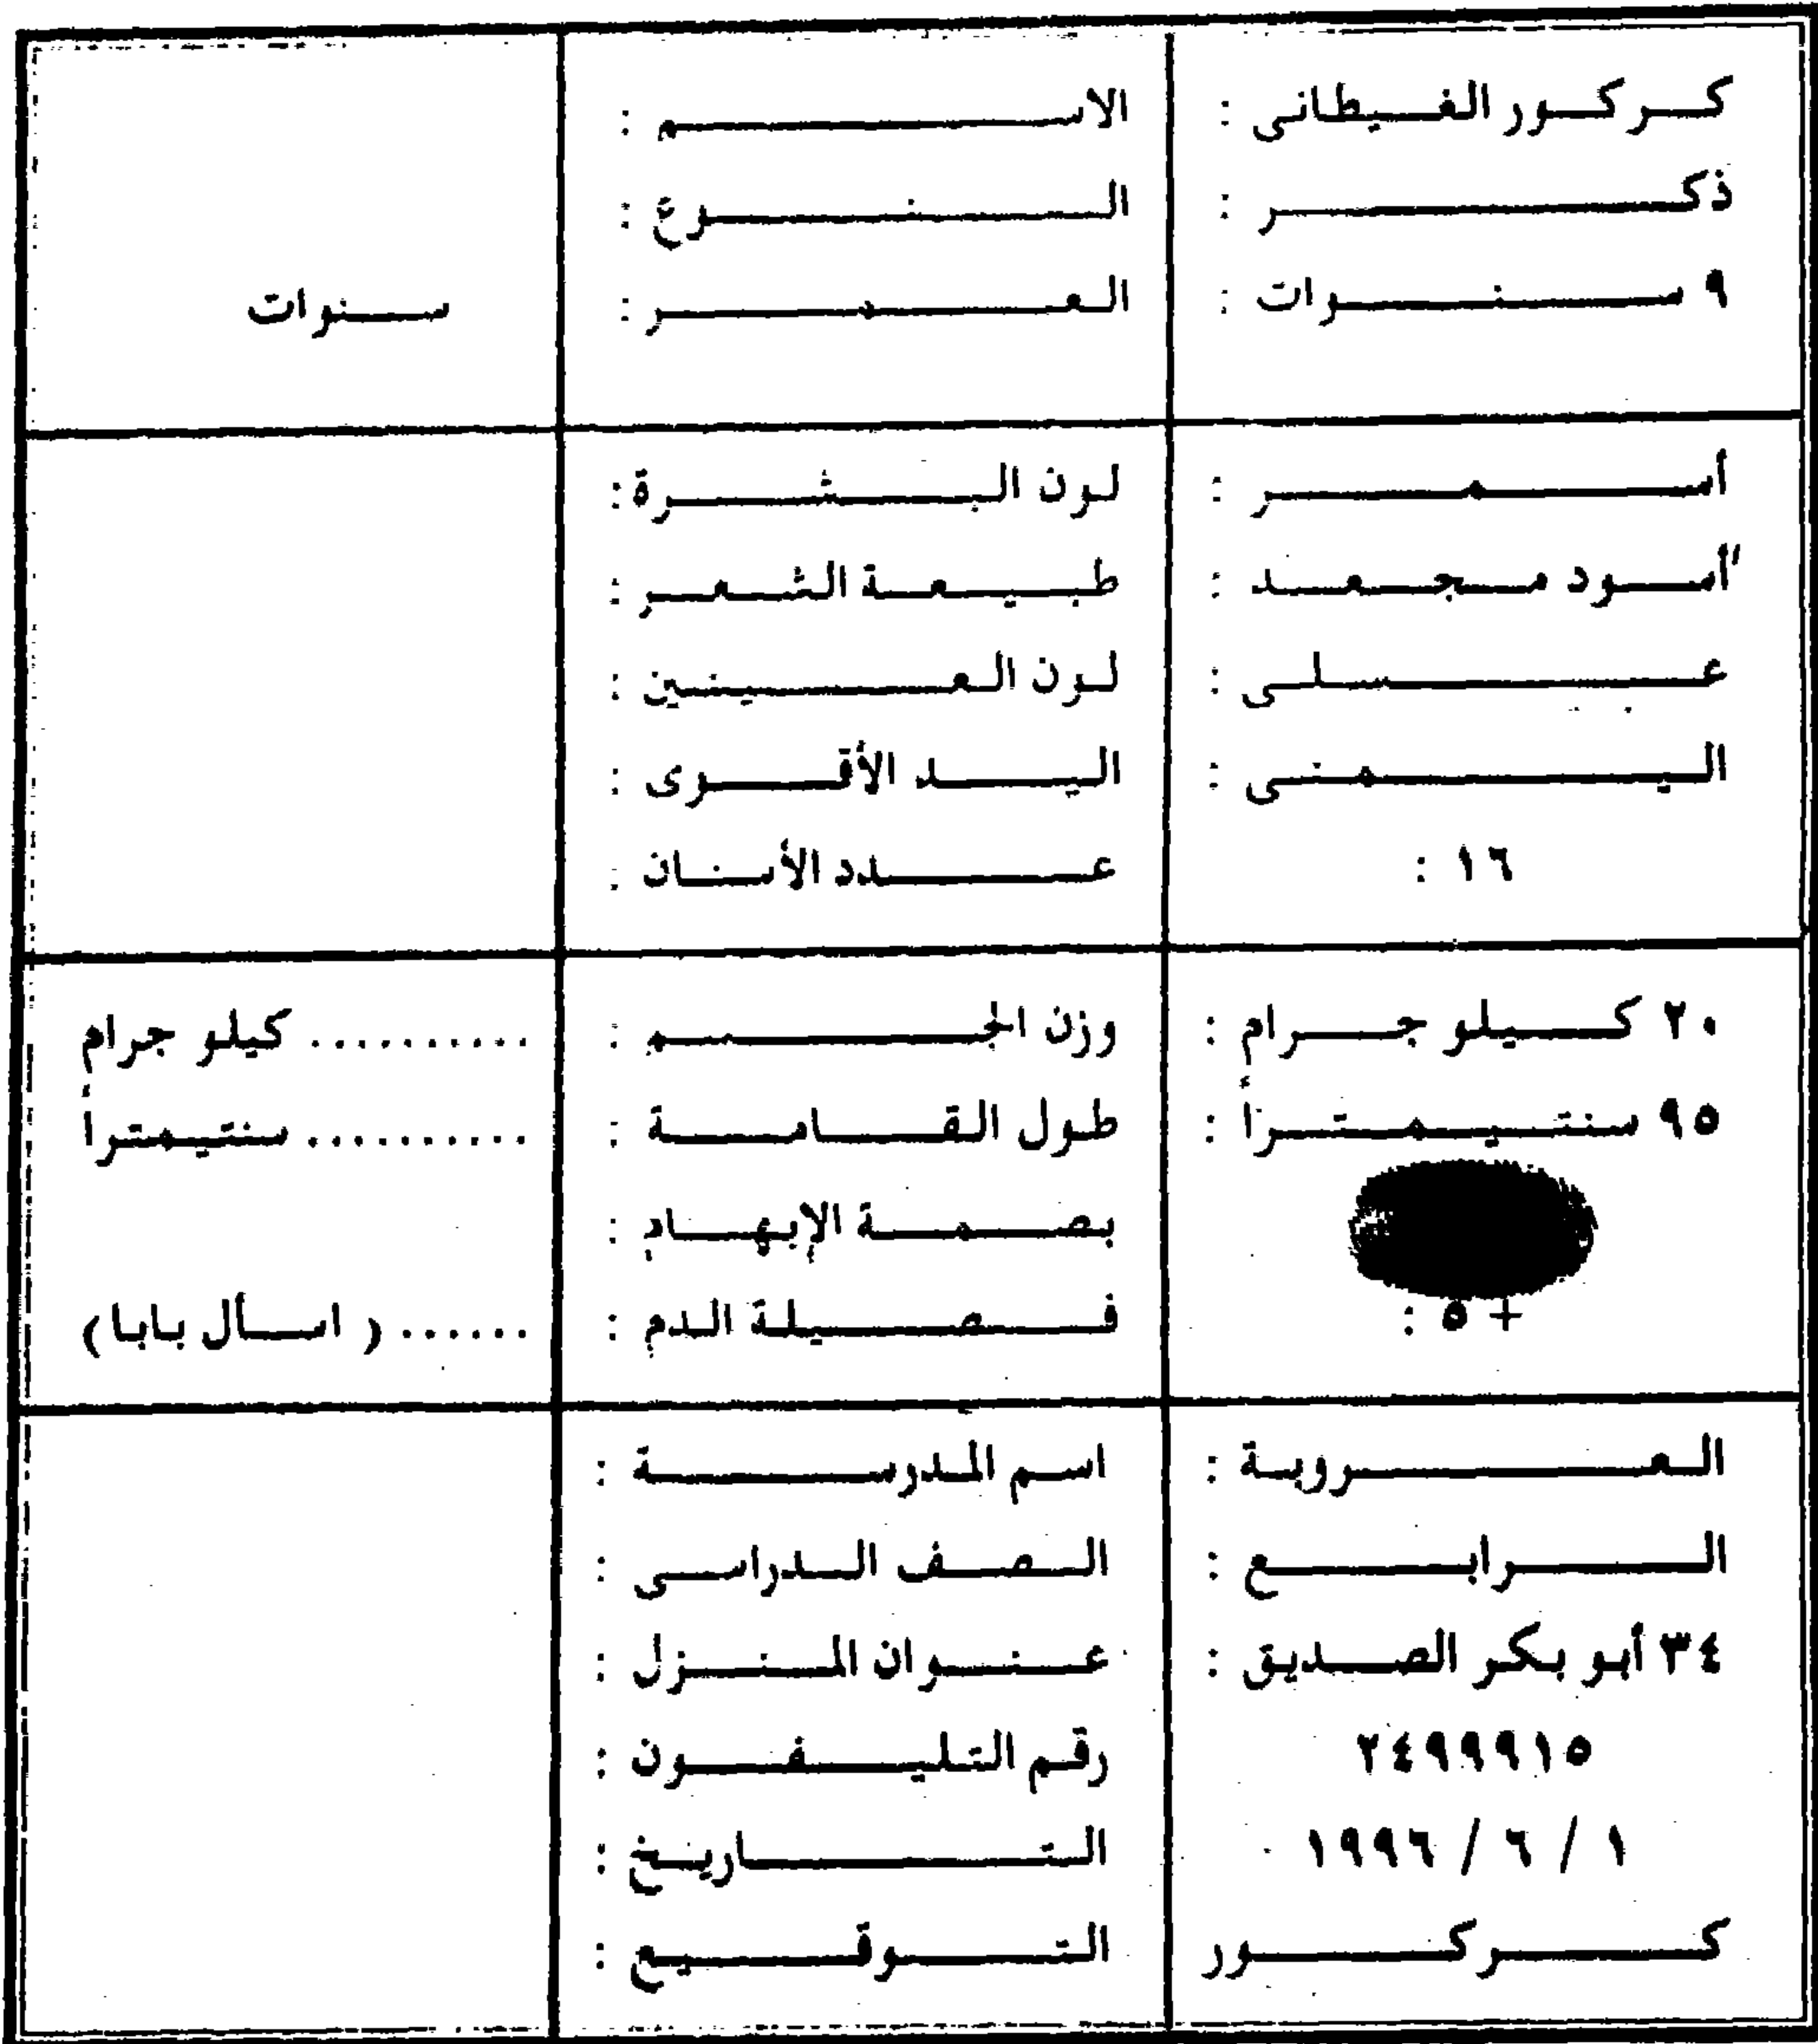 كركور الغيطانى : الاسم :
ذكر : النوع :
٩ سنوات : العمر : سنوات
أسمر : لون البشرة :
أسود مجعد : طبيعة الشعر :
عسلى : لون العينين :
اليمنى : اليد الأقوى :
١٦ : عدد الأسنان :
٢٠ كيلو جرام : وزن الجسم : .......... كيلو جرام
٩٥ سنتيمتراً : طول القامة : .......... سنتيمتراً
بصمة الإبهام :
+ ٥ : فصيلة الدم : ...... ( اسأل بابا )
العروبة : اسم المدرسة :
الرابع : الصف الدراسى :
٣٤ أبو بكر الصديق : عنوان المنزل :
٢٤٩٩٩١٥ رقم التليفون :
١ / ٦ / ١٩٩٦ التاريخ :
كركور التوقيع :